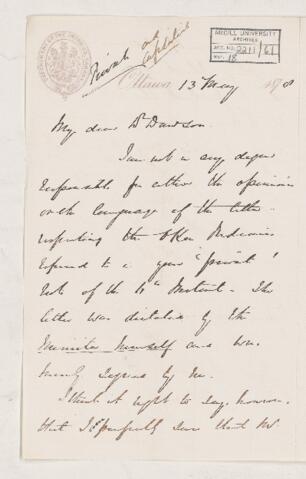 McGILL UNIVERSITY
ARCHIVES
ACC. NO. 2211/61
REF. 18
Private and
Confidential
Ottawa 13 May 1878
My dear Dr Dawson
I am not in any degree
responsible for either the opinions
or the language of the letter
respecting the
referred to in your "private"
note of the 11th Instant. The
letter was dictated by the
Minister himself and was
merely signed by me.
I think it right to say, however,
that I am perfectly sure that Mr